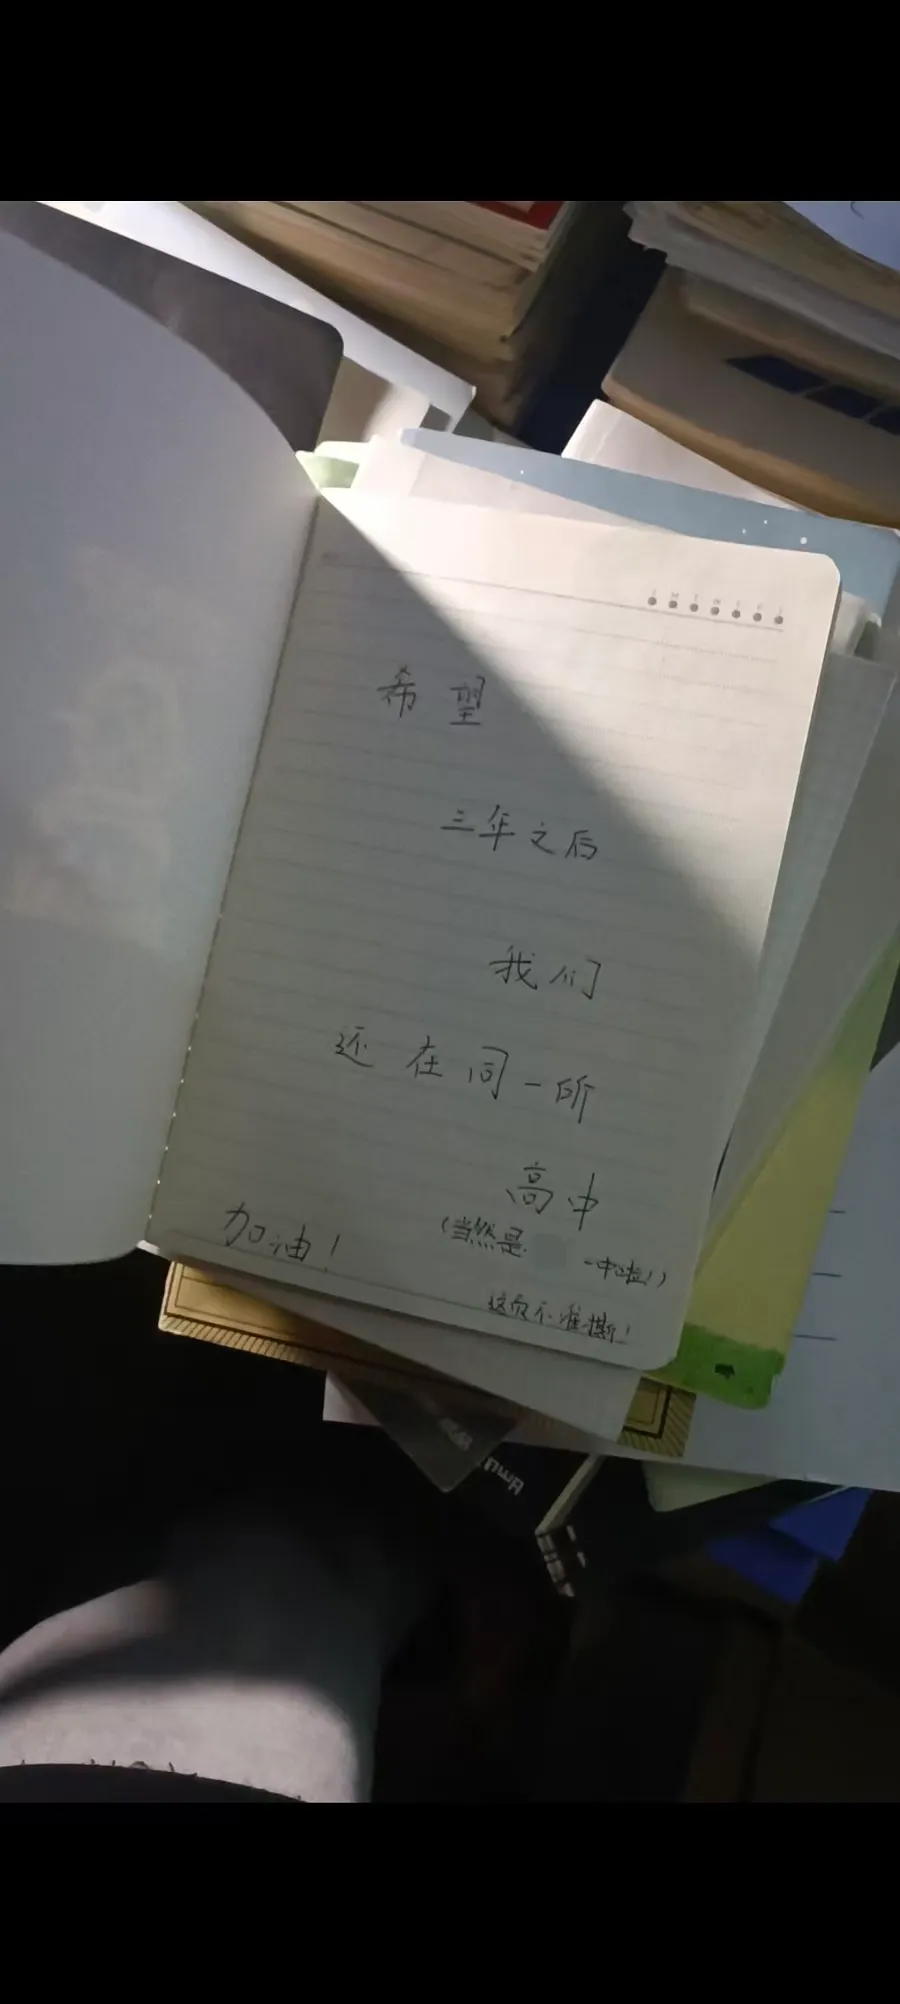 希望
三年之后
我们
还在同一所
高中
(当然是 一中啦!)
加油!
这页不准撕!